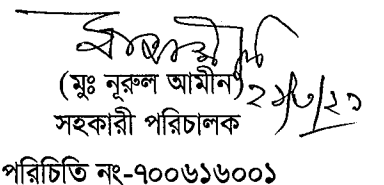 (মুঃ নূরুল আমীন)
সহকারী পরিচালক
পরিচিতি নং-৭০০৬১৬০০১